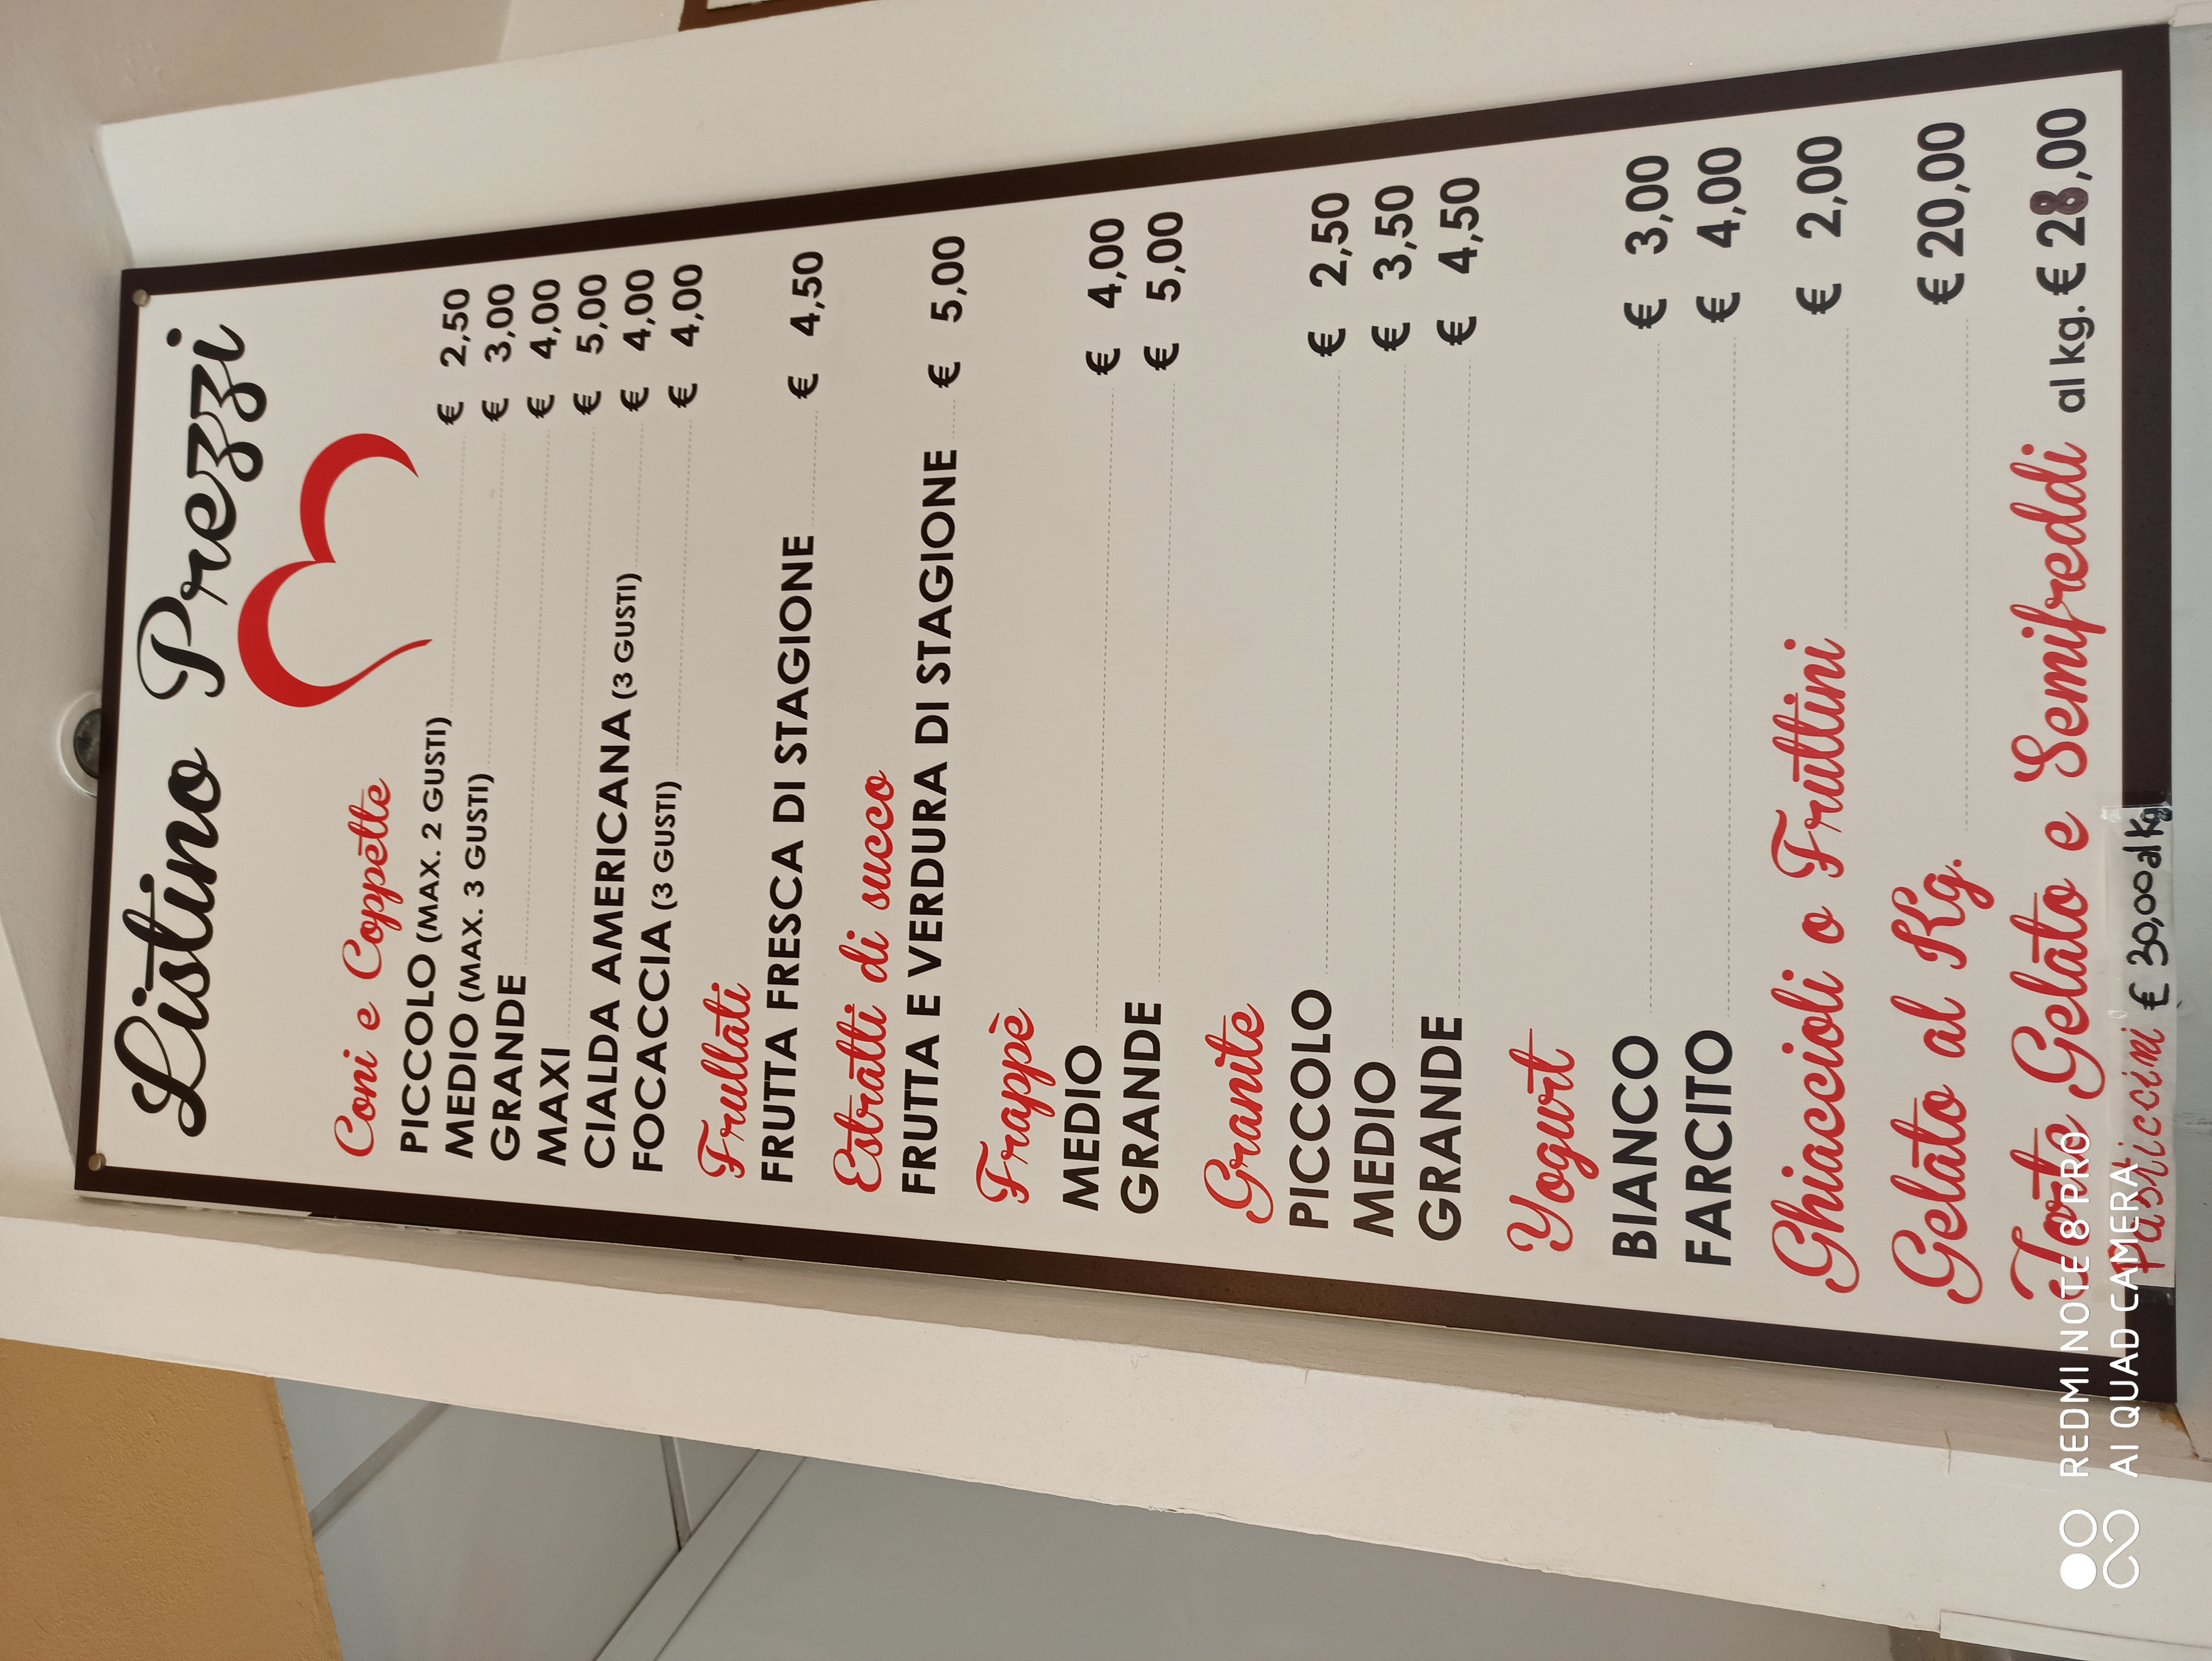 Listino Prezzi
Coni e Coppette
PICCOLO (MAX. 2 GUSTI) € 2,50
MEDIO (MAX. 3 GUSTI) € 3,00
GRANDE € 4,00
MAXI € 5,00
CIALDA AMERICANA (3 GUSTI) € 4,00
FOCACCIA (3 GUSTI) € 4,00
Frullati
FRUTTA FRESCA DI STAGIONE € 4,50
Estratti di succo
FRUTTA E VERDURA DI STAGIONE € 5,00
Frappè
MEDIO € 4,00
GRANDE € 5,00
Granite
PICCOLO € 2,50
MEDIO € 3,50
GRANDE € 4,50
Yogurt
BIANCO € 3,00
FARCITO € 4,00
Ghiaccioli o Fruttini € 2,00
Gelato al Kg. € 20,00
Torte Gelato e Semifreddi al kg. € 28,00
Pasticcini € 30,00 al kg
REDMI NOTE 8 PRO
AI QUAD CAMERA